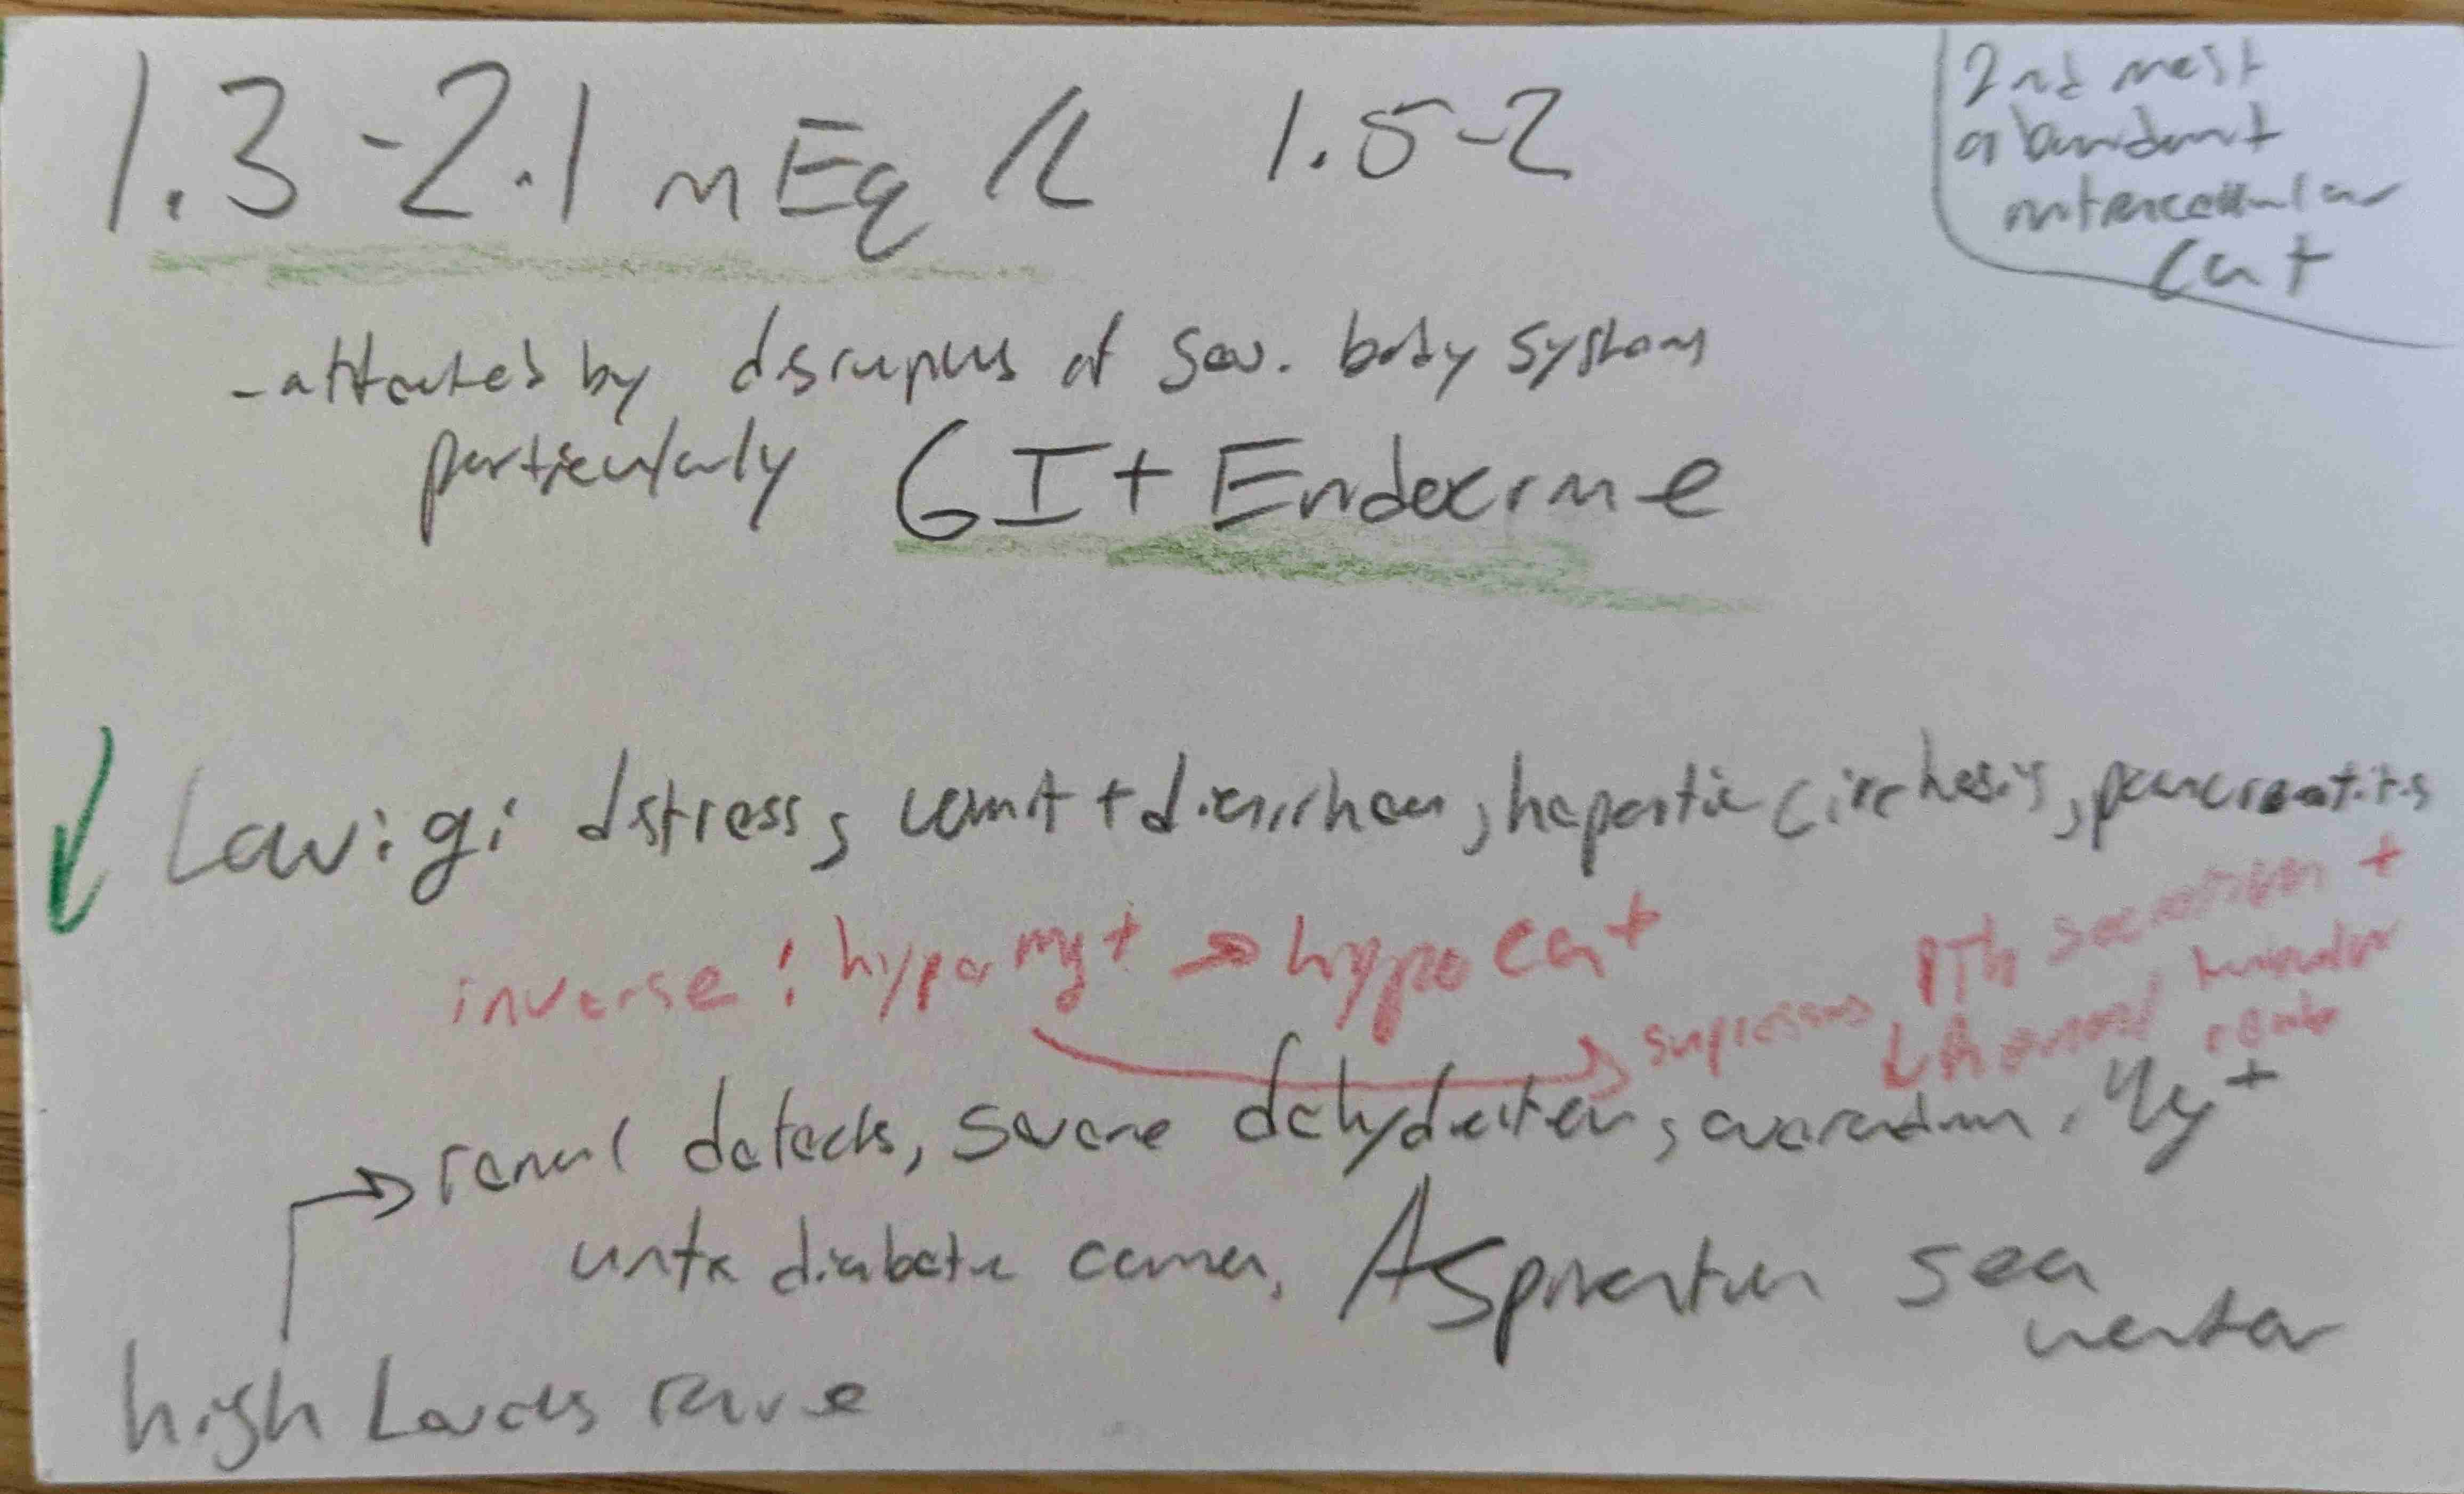 1.3-2.1 mEq/L 1.5-2
2nd most
abundant
intracellular
Cat
-affected by disrupns of sev. body systems
particularly GI + Endocrine
Low: gi distress, vomit + diarrhea, hepatic cirrhosis, pancreatitis
inverse: hyper mg+ → hypo Ca+
supresses PTH secretion +
↓ renal tubular
renal defects, severe dehydration, overadm. Mg+
untx diabetic coma, Aspiration sea
water
high Levels rare